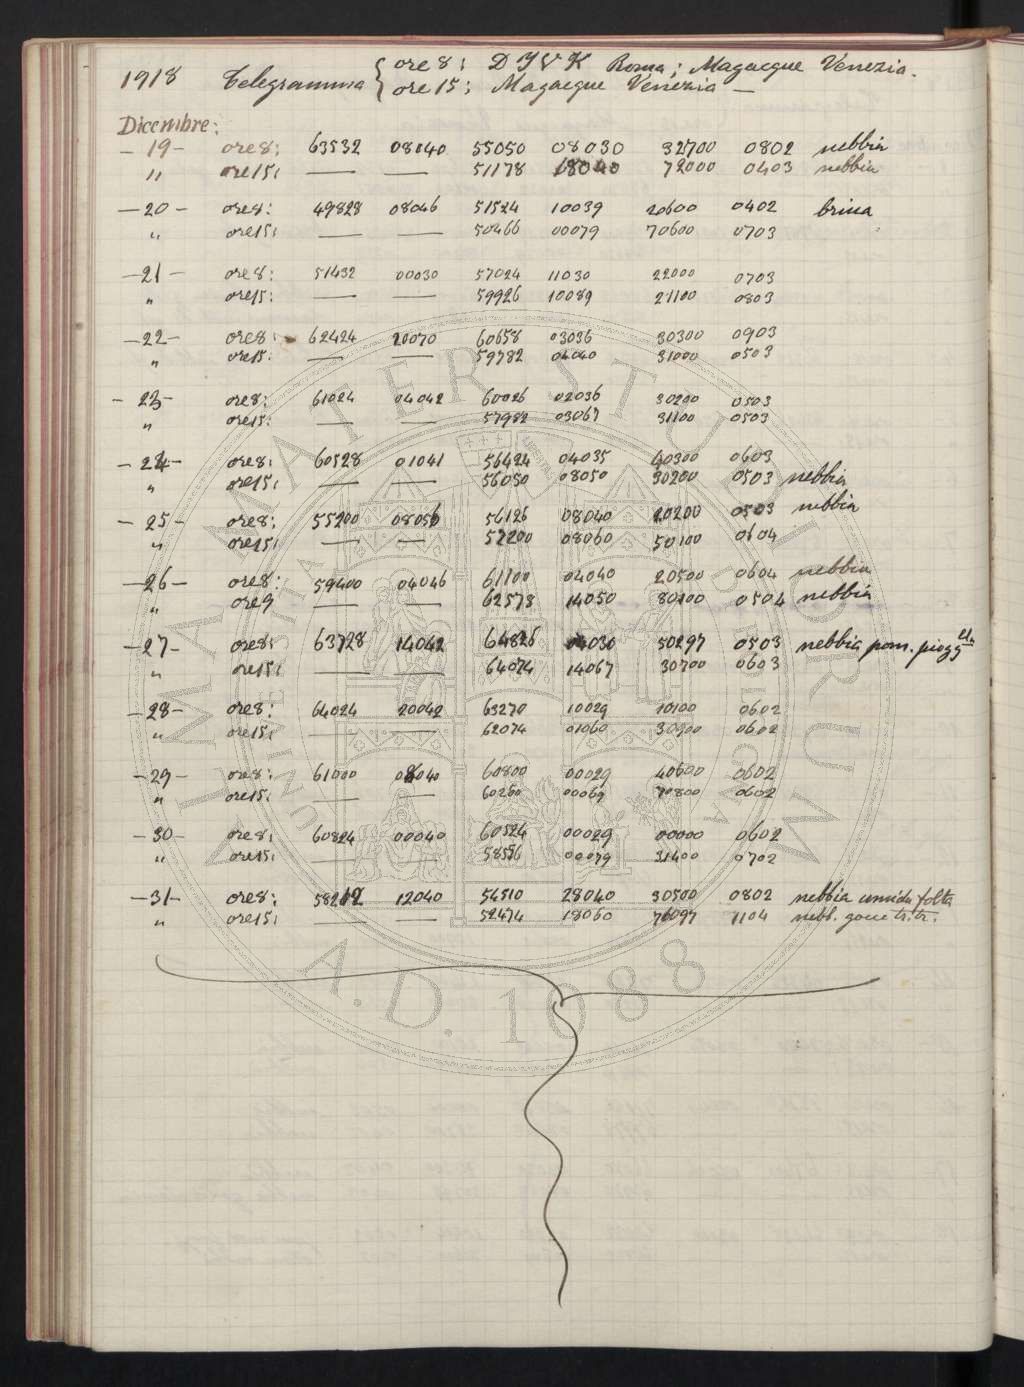 1918 Telegramma { ore 8: D I V K Roma; Magacque Venezia.
ore 15: Magacque Venezia —
Dicembre:
— 19 — ore 8: 63532 08040 55050 08030 32700 0802 nebbia
" ore 15: — — 51178 18040 72000 0403 nebbia
— 20 — ore 8: 49828 08046 51524 10039 20600 0402 brina
" ore 15: — — 50466 00079 70600 0703
— 21 — ore 8: 51432 00030 57024 11030 22000 0703
" ore 15: — — 59926 10089 21100 0803
— 22 — ore 8: 62424 20070 60658 03036 30300 0903
" ore 15: — — 59782 04040 31000 0503
— 23 — ore 8: 61024 04042 60026 02036 30200 0503
" ore 15: — — 57982 03067 31100 0503
— 24 — ore 8: 60528 01041 56424 04035 40300 0603
" ore 15: — — 56050 08050 30200 0503 nebbia
— 25 — ore 8: 55200 08056 56126 08040 20200 0503 nebbia
" ore 15: — — 57200 08060 50100 0604
— 26 — ore 8: 59400 04046 61100 04040 20500 0604 nebbia
" ore 9 — — 62578 14050 80100 0504 nebbia
— 27 — ore 8: 63728 14042 64826 04030 50297 0503 nebbia pom. piogg
" ore 15: — — 64074 14067 30700 0603
— 28 — ore 8: 64024 20042 63270 10029 10100 0602
" ore 15: — — 62074 01060 30900 0602
— 29 — ore 8: 61000 08040 60800 00029 40600 0602
" ore 15: — — 60260 00069 70800 0602
— 30 — ore 8: 60824 00040 60524 00029 00000 0602
" ore 15: — — 58556 00079 31400 0702
— 31 — ore 8: 58212 12040 54510 28040 30500 0802 nebbia umida folta
" ore 15: — — 52474 18060 76097 1104 nebb. gocce tr. tr.
ALMA MATER STUDIORUM
A.D. 1088